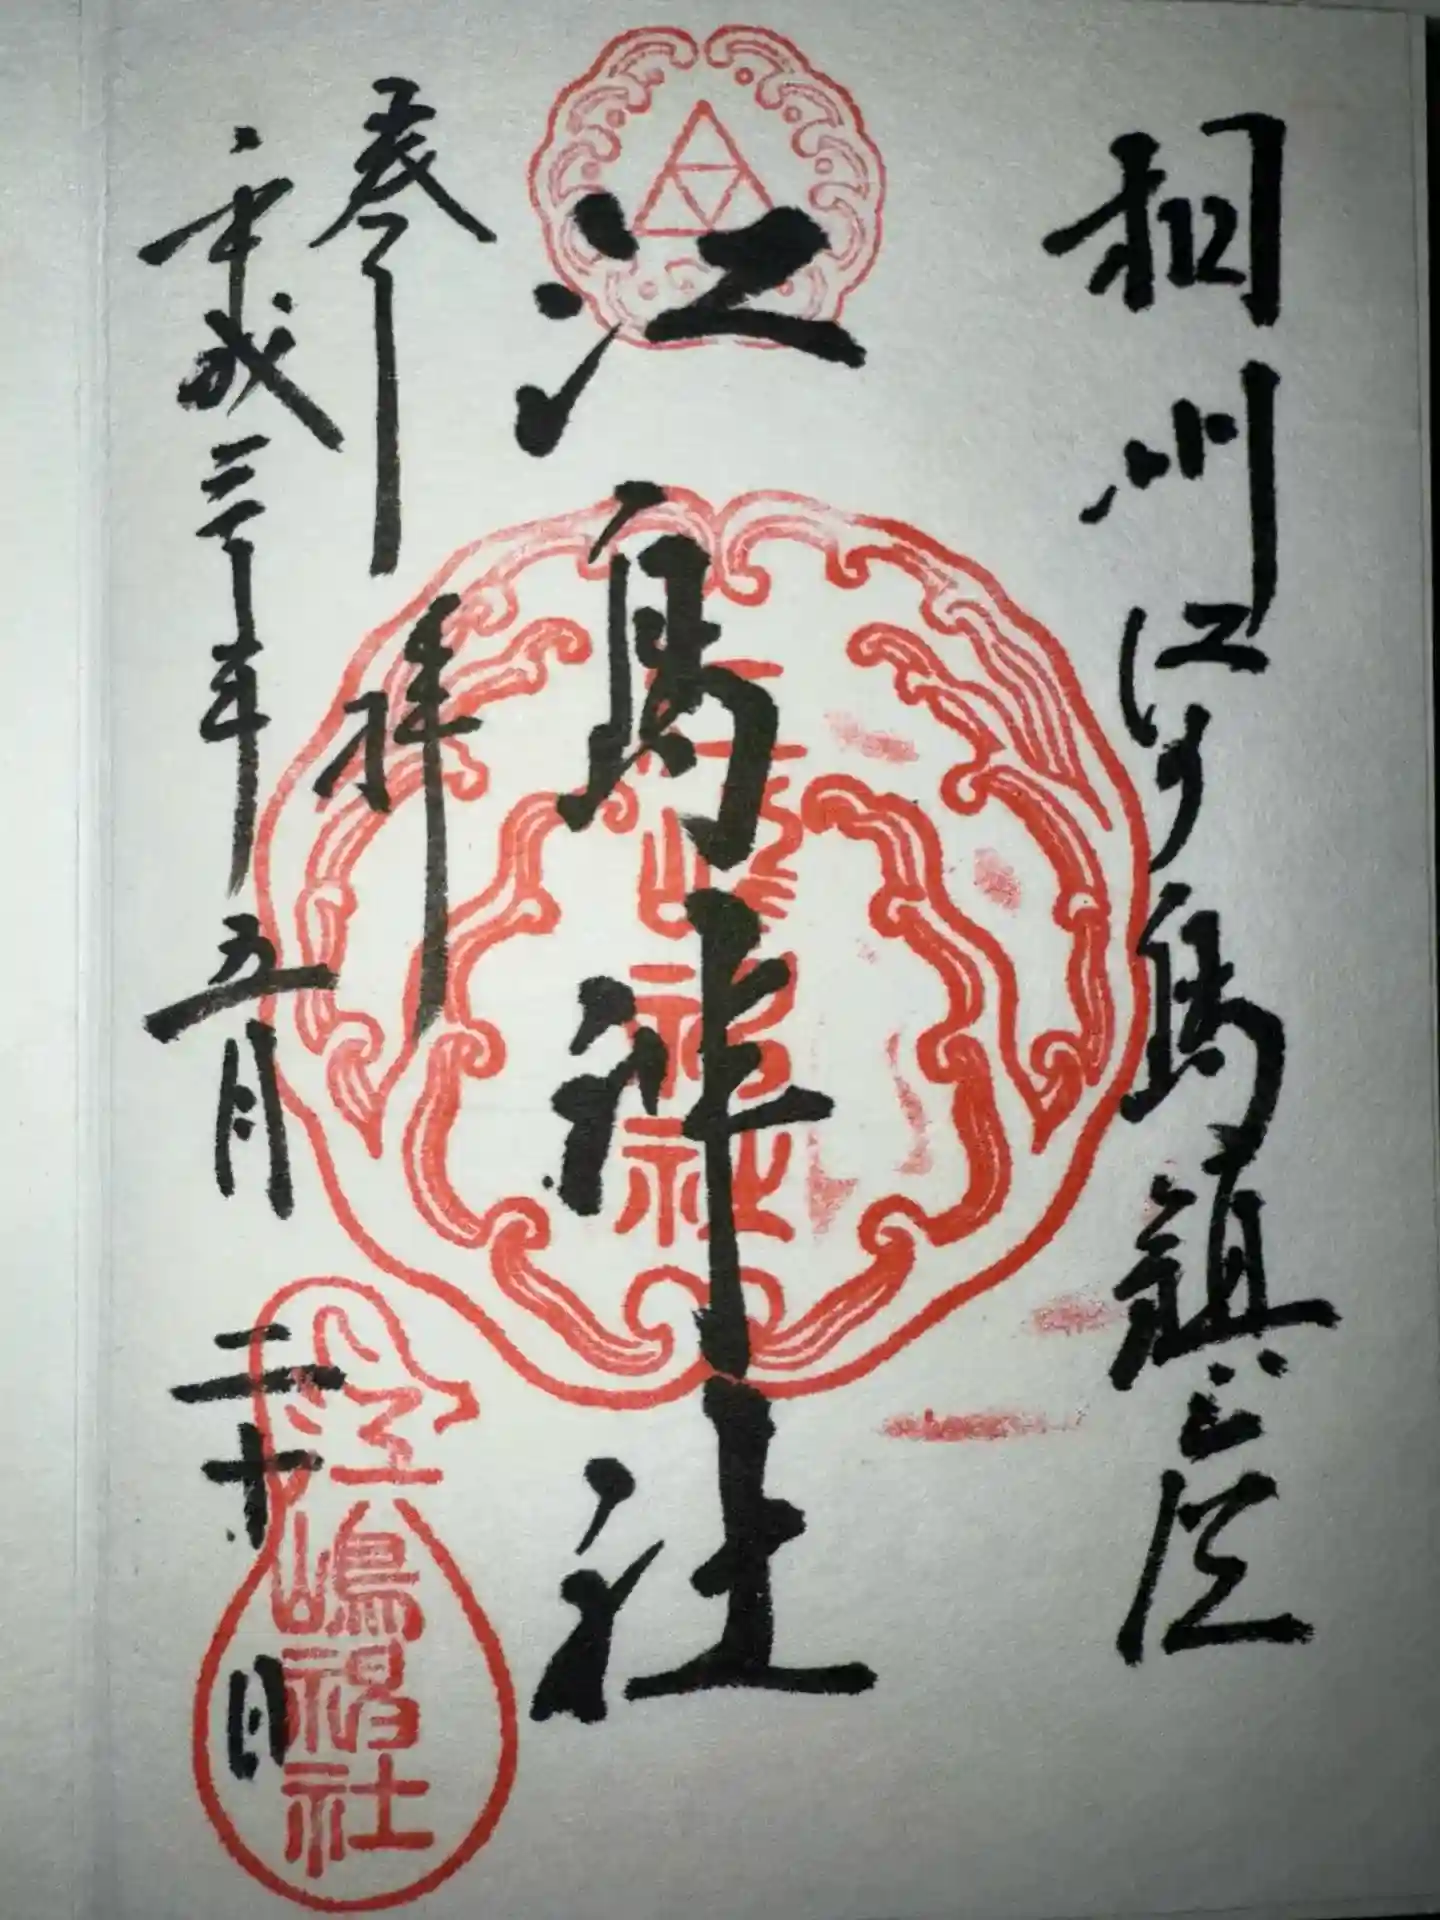 相州江の島鎮座
江島神社
江嶋神社
奉拝
平成三十年五月二十日
江嶋神社